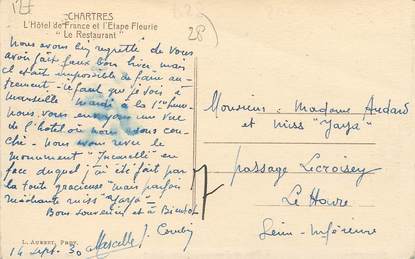 28
CHARTRES
L'Hôtel de France et l'Etape Fleurie
"Le Restaurant"
Nous avons bien regretté de vous
avoir fait faux bon hier mais
il était impossible de faire au-
trement - il faut que je sois à
Marseille Mardi à la 1ère heure
nous vous envoyons une vue
de l'hotel où nous avons cou-
ché - nous avons revu le
monument "Jumelle" en
face duquel j'ai été fait par
la toute gracieuse mais parfois
méchante miss "Yaya"
Bon souvenir et à Bientôt
Marcelle J.
14 Sept. 30
L. AUBERT, PHOT.
Monsieur & Madame Audard
et miss "Yaya"
7 passage Lecroisey
Le Havre
Seine-Inférieure